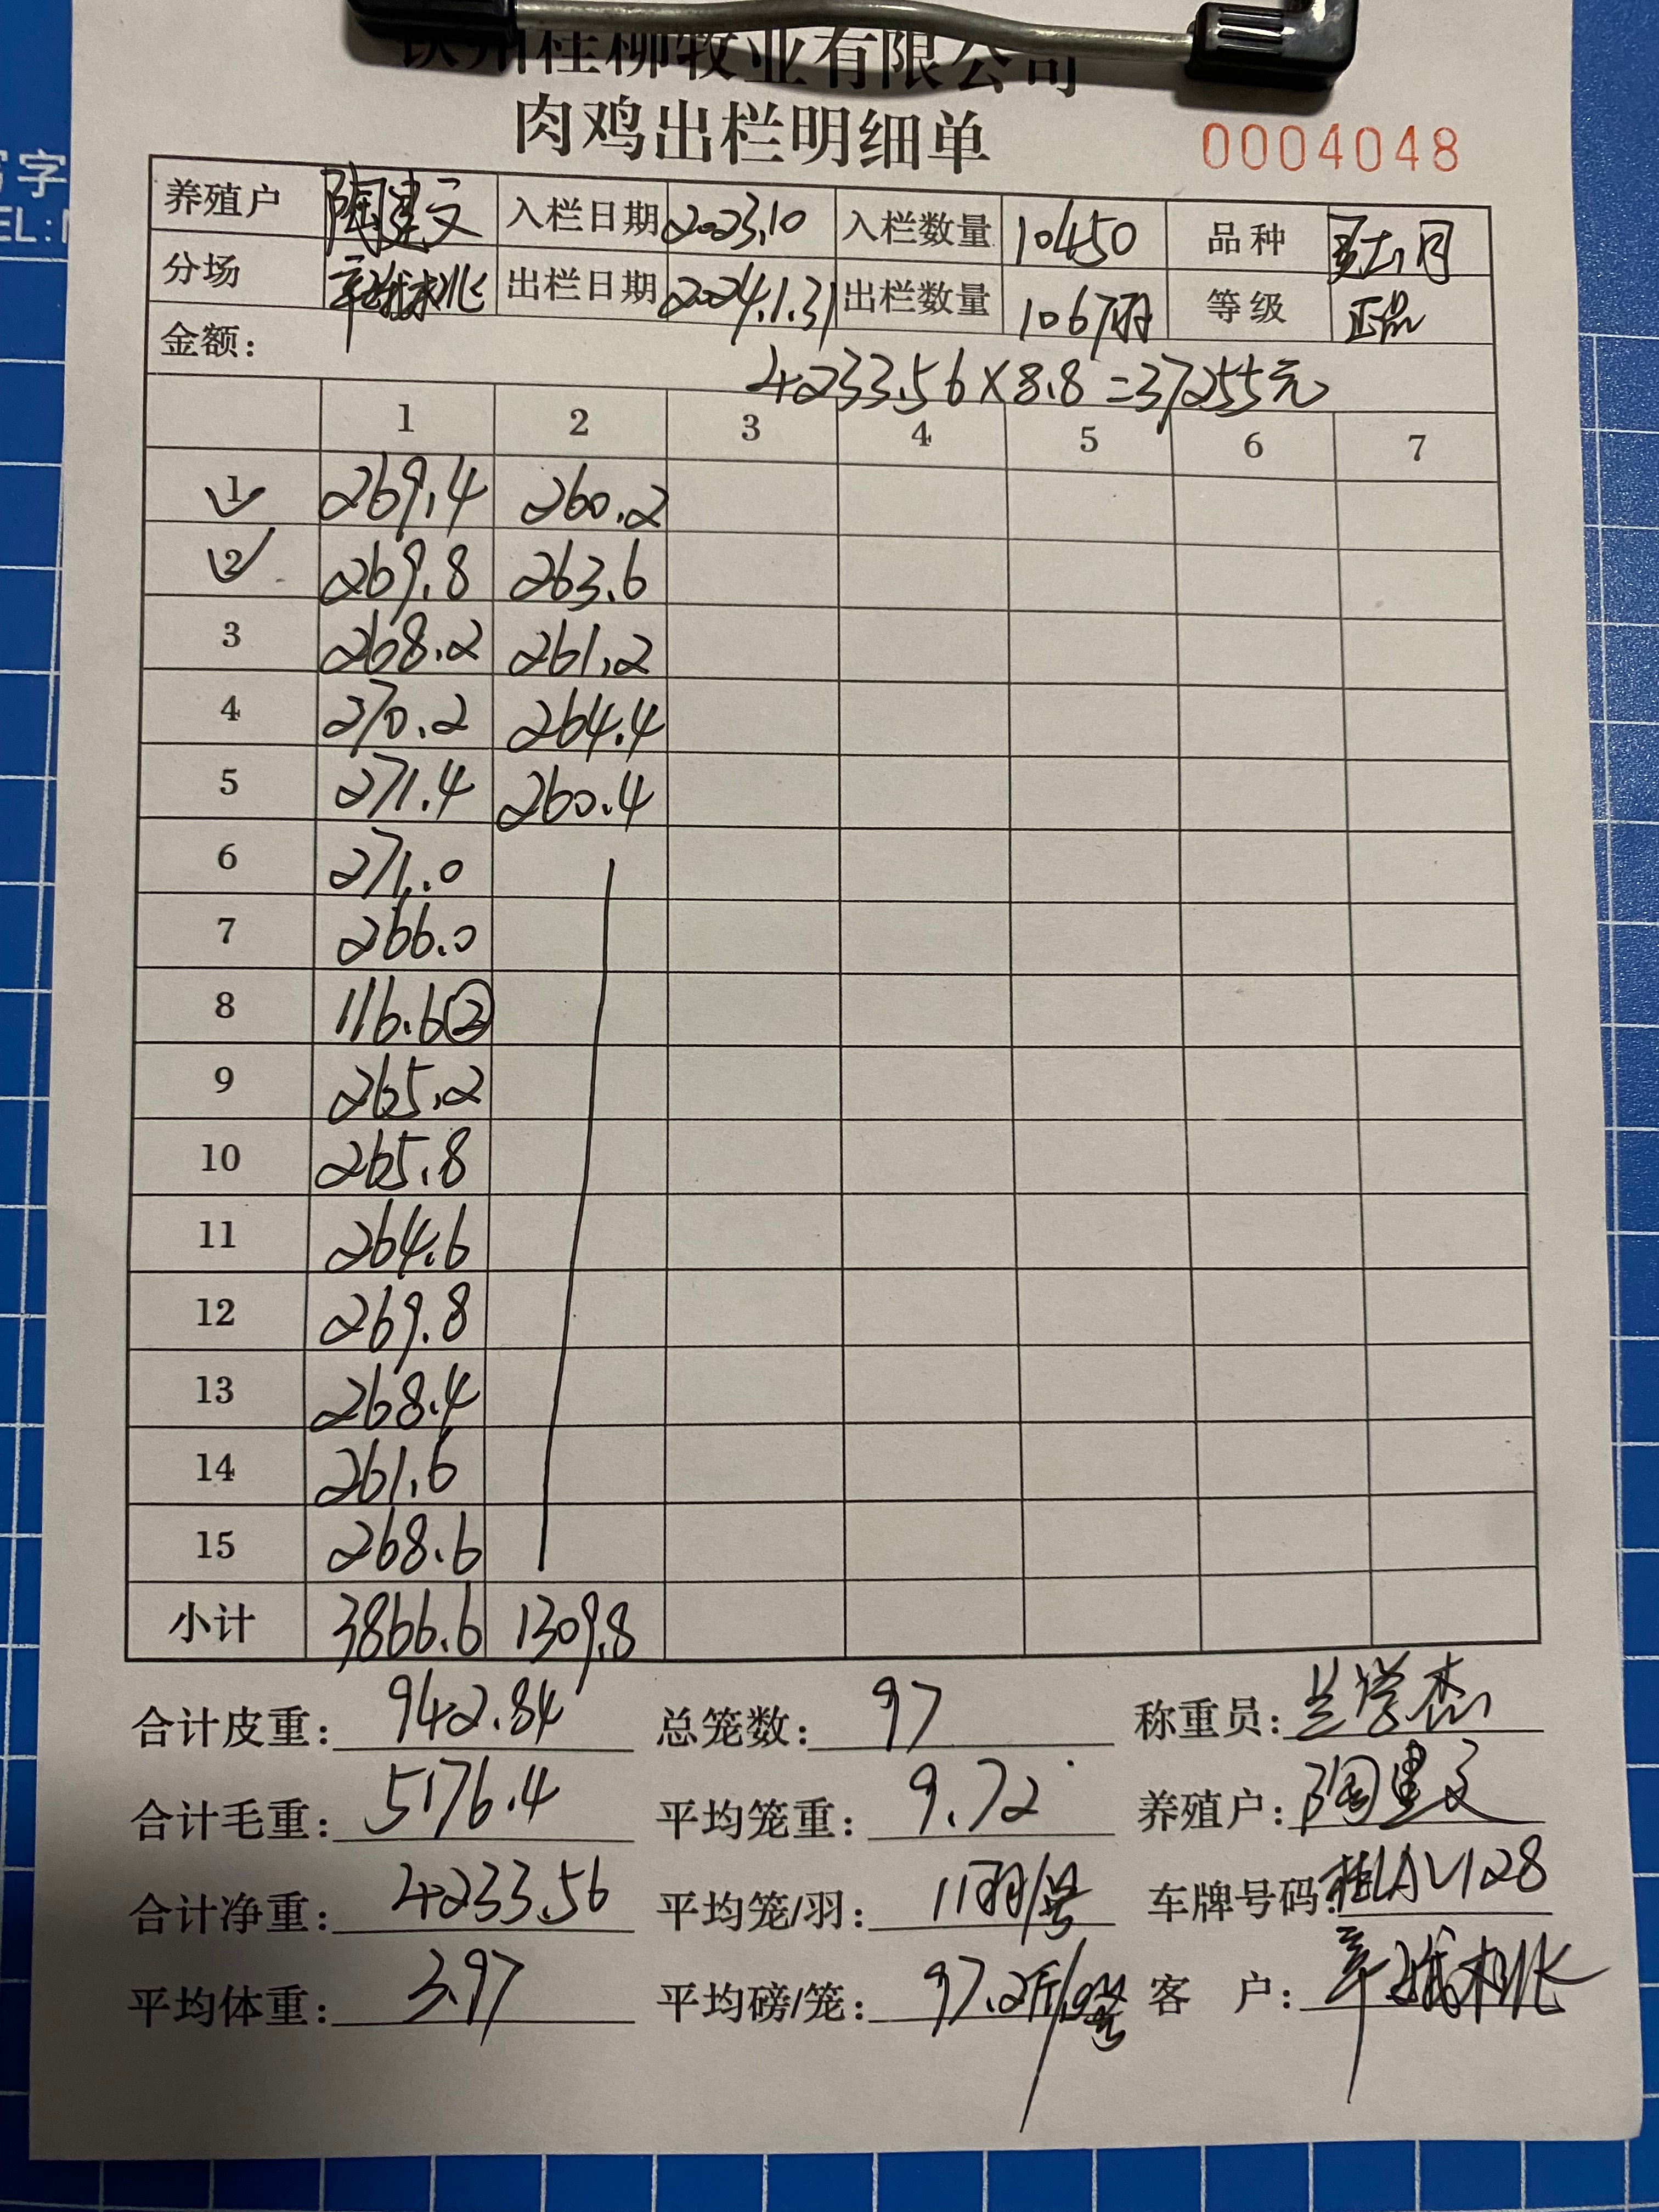 钦州桂柳牧业有限公司
肉鸡出栏明细单 0004048
养殖户 陶建文 入栏日期 2023.10 入栏数量 10450 品种
分场 出栏日期 2024.1.31 出栏数量 1067羽 等级 正品
金额: 4233.56×8.8=37255元
1 2 3 4 5 6 7
1 269.4 260.2
2 269.8 263.6
3 268.2 261.2
4 270.2 264.4
5 271.4 260.4
6 271.0
7 266.0
8 116.6②
9 265.2
10 265.8
11 264.6
12 269.8
13 268.4
14 261.6
15 268.6
小计 3866.6 1309.8
合计皮重: 942.84 总笼数: 97 称重员: 兰学杰
合计毛重: 5176.4 平均笼重: 9.72 养殖户: 陶建文
合计净重: 4233.56 平均笼/羽: 11羽/笼 车牌号码: 桂LAV128
平均体重: 3.97 平均磅/笼: 97.2斤/ 客户:
字
EL: